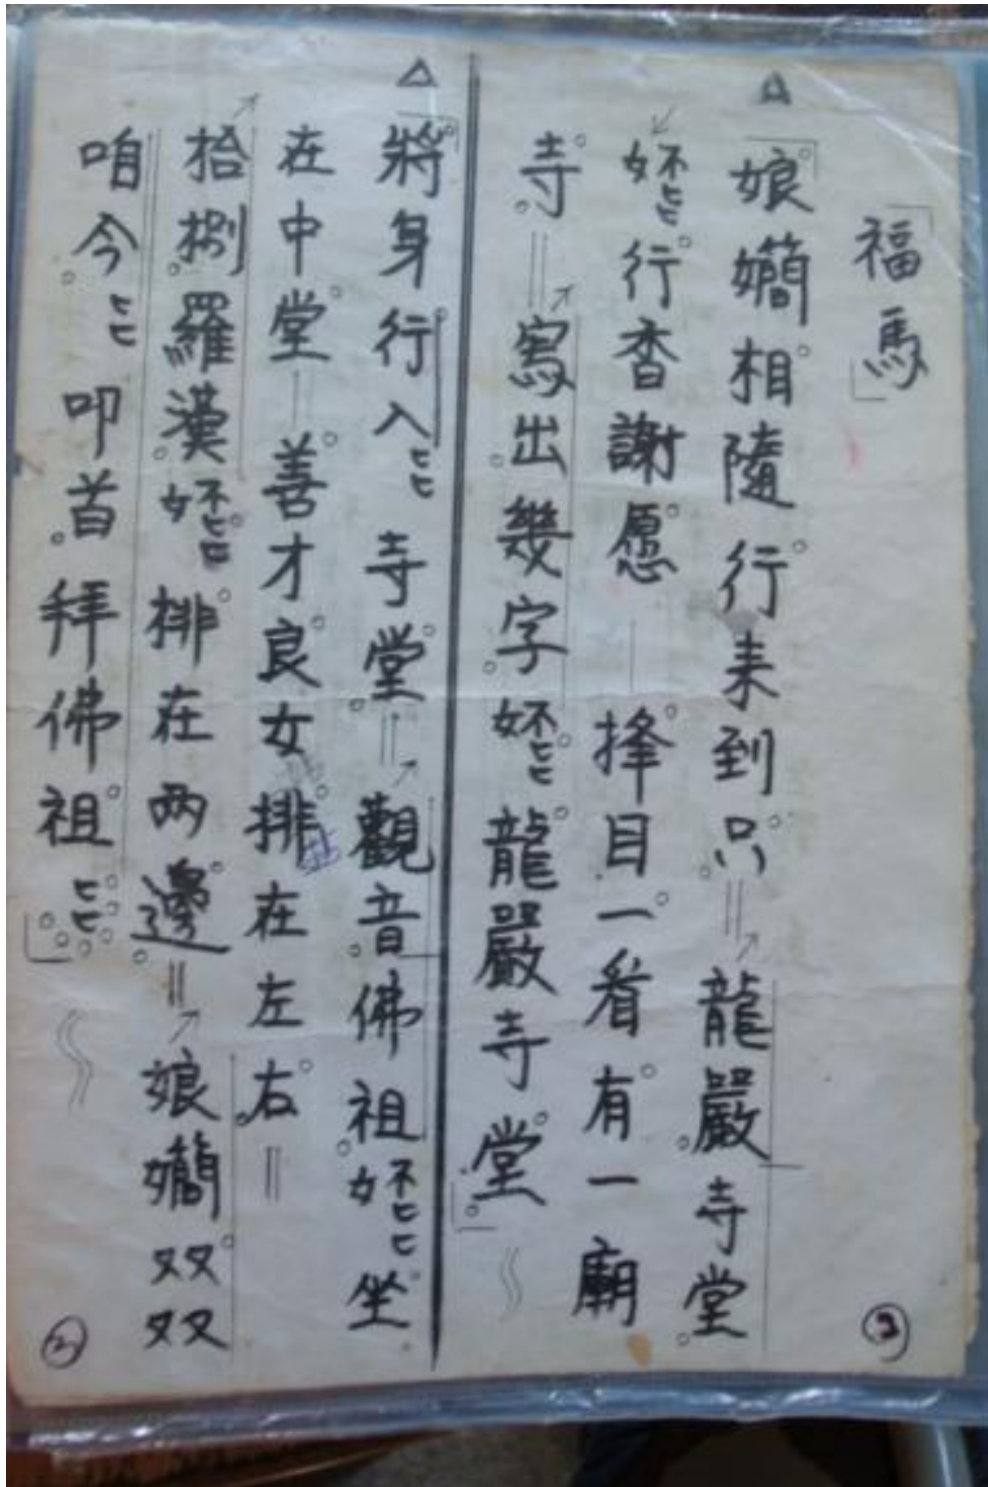 「福馬」
娘嫺相隨行來到只龍嚴寺堂
㚰行香謝愿 擇目一看有一廟
寺 寫出幾字㚰龍嚴寺堂
將身行入寺堂觀音佛祖㚰坐
在中堂善才良女排在左右
拾捌羅漢㚰排在兩邊娘嫺双双
咱今叩首拜佛祖
3
2